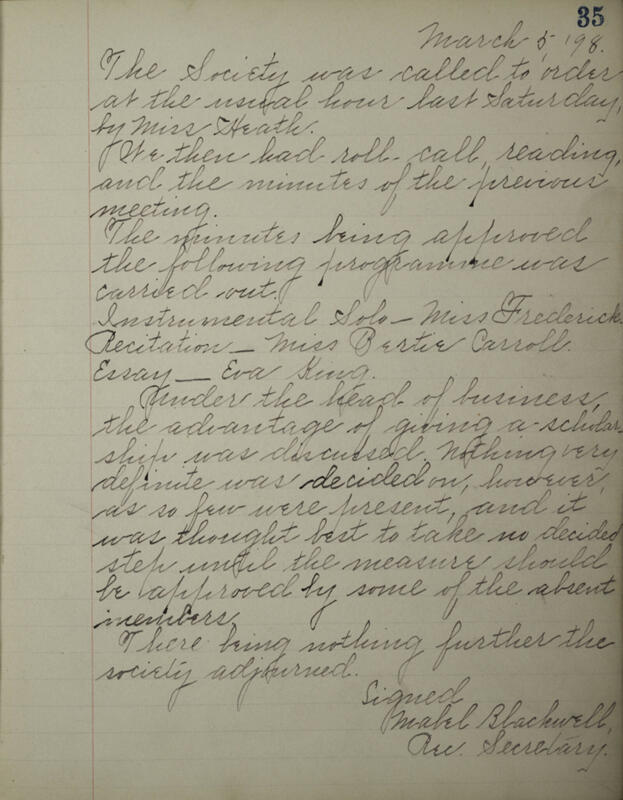 35
March 5, '98.
The Society was called to order
at the usual hour last Saturday,
by Miss Heath.
We then had roll-call, reading,
and the minutes of the previous
meeting.
The minutes being approved
the following programme was
carried out.
Instrumental Solo — Miss Frederick.
Recitation — Miss Bertie Carroll.
Essay — Eva King.
Under the head of business,
the advantage of giving a scholar-
ship was discussed. Nothing very
definite was decided on, however,
as so few were present, and it
was thought best to take no decided
step until the measure should
be approved by some of the absent
members.
There being nothing further the
society adjourned.
Signed
Mabel Blackwell,
Rec. Secretary.